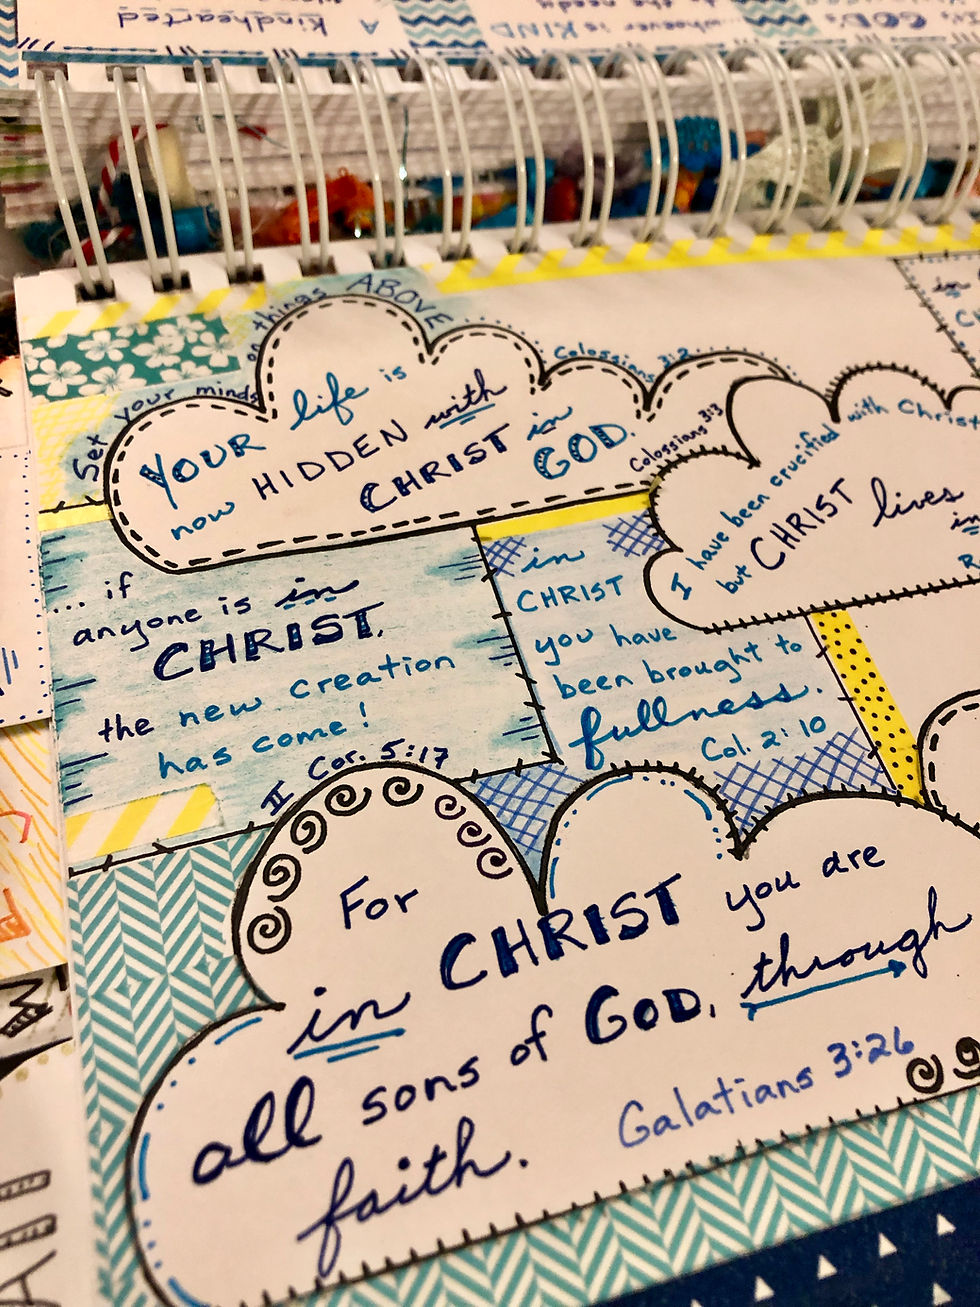 A kindhearted
whoever is KIND
to the needy
GOD
Set your minds
on things ABOVE
Colossians 3:2
YOUR life is
now HIDDEN with
CHRIST in
GOD.
Colossians 3:3
I have been crucified with Christ
but CHRIST lives
in
in
... if
anyone is in
CHRIST,
the new creation
has come!
II Cor. 5:17
in
CHRIST
you have
been brought to
fullness.
Col. 2:10
For
in CHRIST you are
all sons of GOD, through
faith. Galatians 3:26